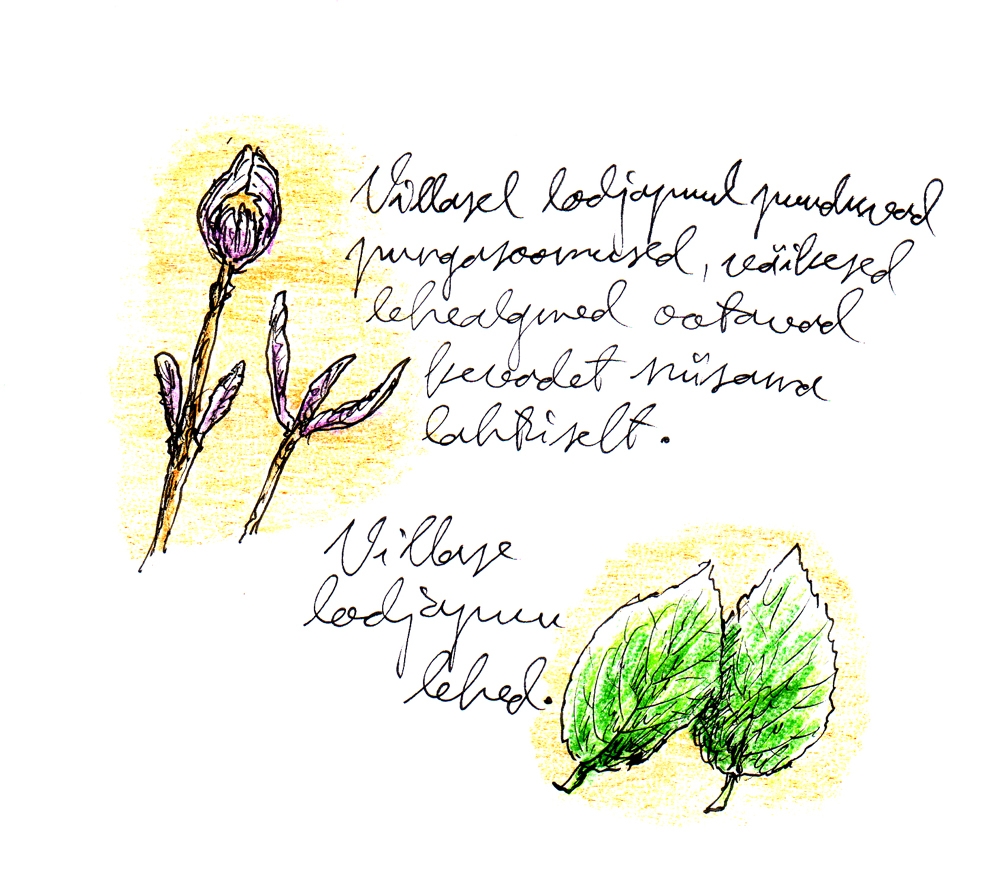 Villasel lodjapuul puuduvad
pungasoomused, väikesed
lehealgmed ootavad
kevadet niisama
lahtiselt.
Villase
lodjapuu
lehed.